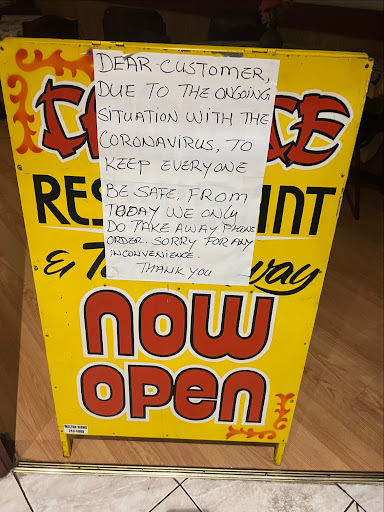 DEAR CUSTOMER,
DUE TO THE ONGOING
SITUATION WITH THE
CORONAVIRUS, TO
KEEP EVERYONE
BE SAFE. FROM
TODAY WE ONLY
DO TAKE AWAY PHONE
ORDER. SORRY FOR ANY
INCONVENIENCE.
THANK YOU
&
way
NOW
OPEN